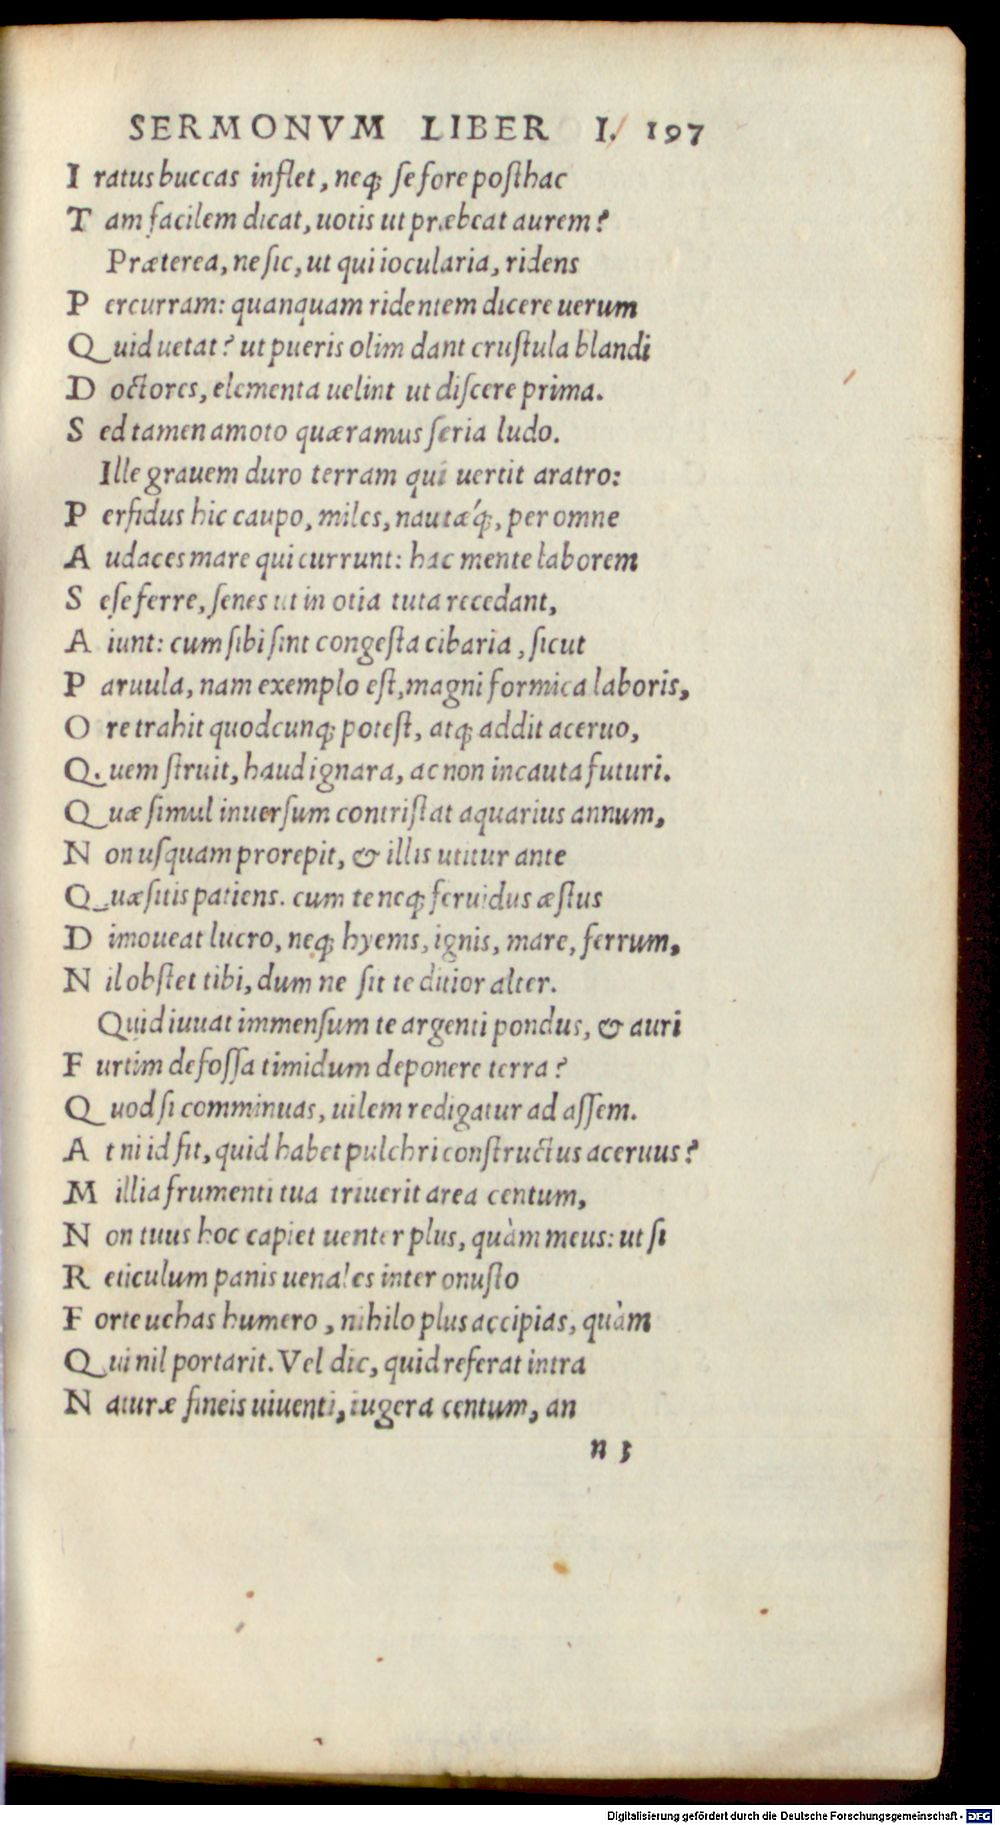 SERMONVM LIBER I. 197
I ratus buccas inflet, neq; se fore posthac
T am facilem dicat, uotis ut præbeat aurem?
Præterea, ne sic, ut qui iocularia, ridens
P ercurram: quanquam ridentem dicere uerum
Q uid uetat? ut pueris olim dant crustula blandi
D octores, elementa uelint ut discere prima.
S ed tamen amoto quæramus seria ludo.
Ille grauem duro terram qui uertit aratro:
P erfidus hic caupo, miles, nautæ´q;, per omne
A udaces mare qui currunt: hac mente laborem
S ese ferre, senes ut in otia tuta recedant,
A iunt: cum sibi sint congesta cibaria, sicut
P aruula, nam exemplo est, magni formica laboris,
O re trahit quodcunq; potest, atq; addit aceruo,
Q uem struit, haud ignara, ac non incauta futuri.
Q uæ simul inuersum contristat aquarius annum,
N on usquam prorepit, & illis utitur ante
Q uæsitis patiens. cum te neq; feruidus æstus
D imoueat lucro, neq; hyems, ignis, mare, ferrum,
N il obstet tibi, dum ne sit te ditior alter.
Quid iuuat immensum te argenti pondus, & auri
F urtim defossa timidum deponere terra?
Q uod si comminuas, uilem redigatur ad assem.
A t ni id fit, quid habet pulchri constructus aceruus?
M illia frumenti tua triuerit area centum,
N on tuus hoc capiet uenter plus, quàm meus: ut si
R eticulum panis uenales inter onusto
F orte uehas humero, nihilo plus accipias, quàm
Q ui nil portarit. Vel dic, quid referat intra
N aturæ fineis uiuenti, iugera centum, an
n 3
Digitalisierung gefördert durch die Deutsche Forschungsgemeinschaft - DFG